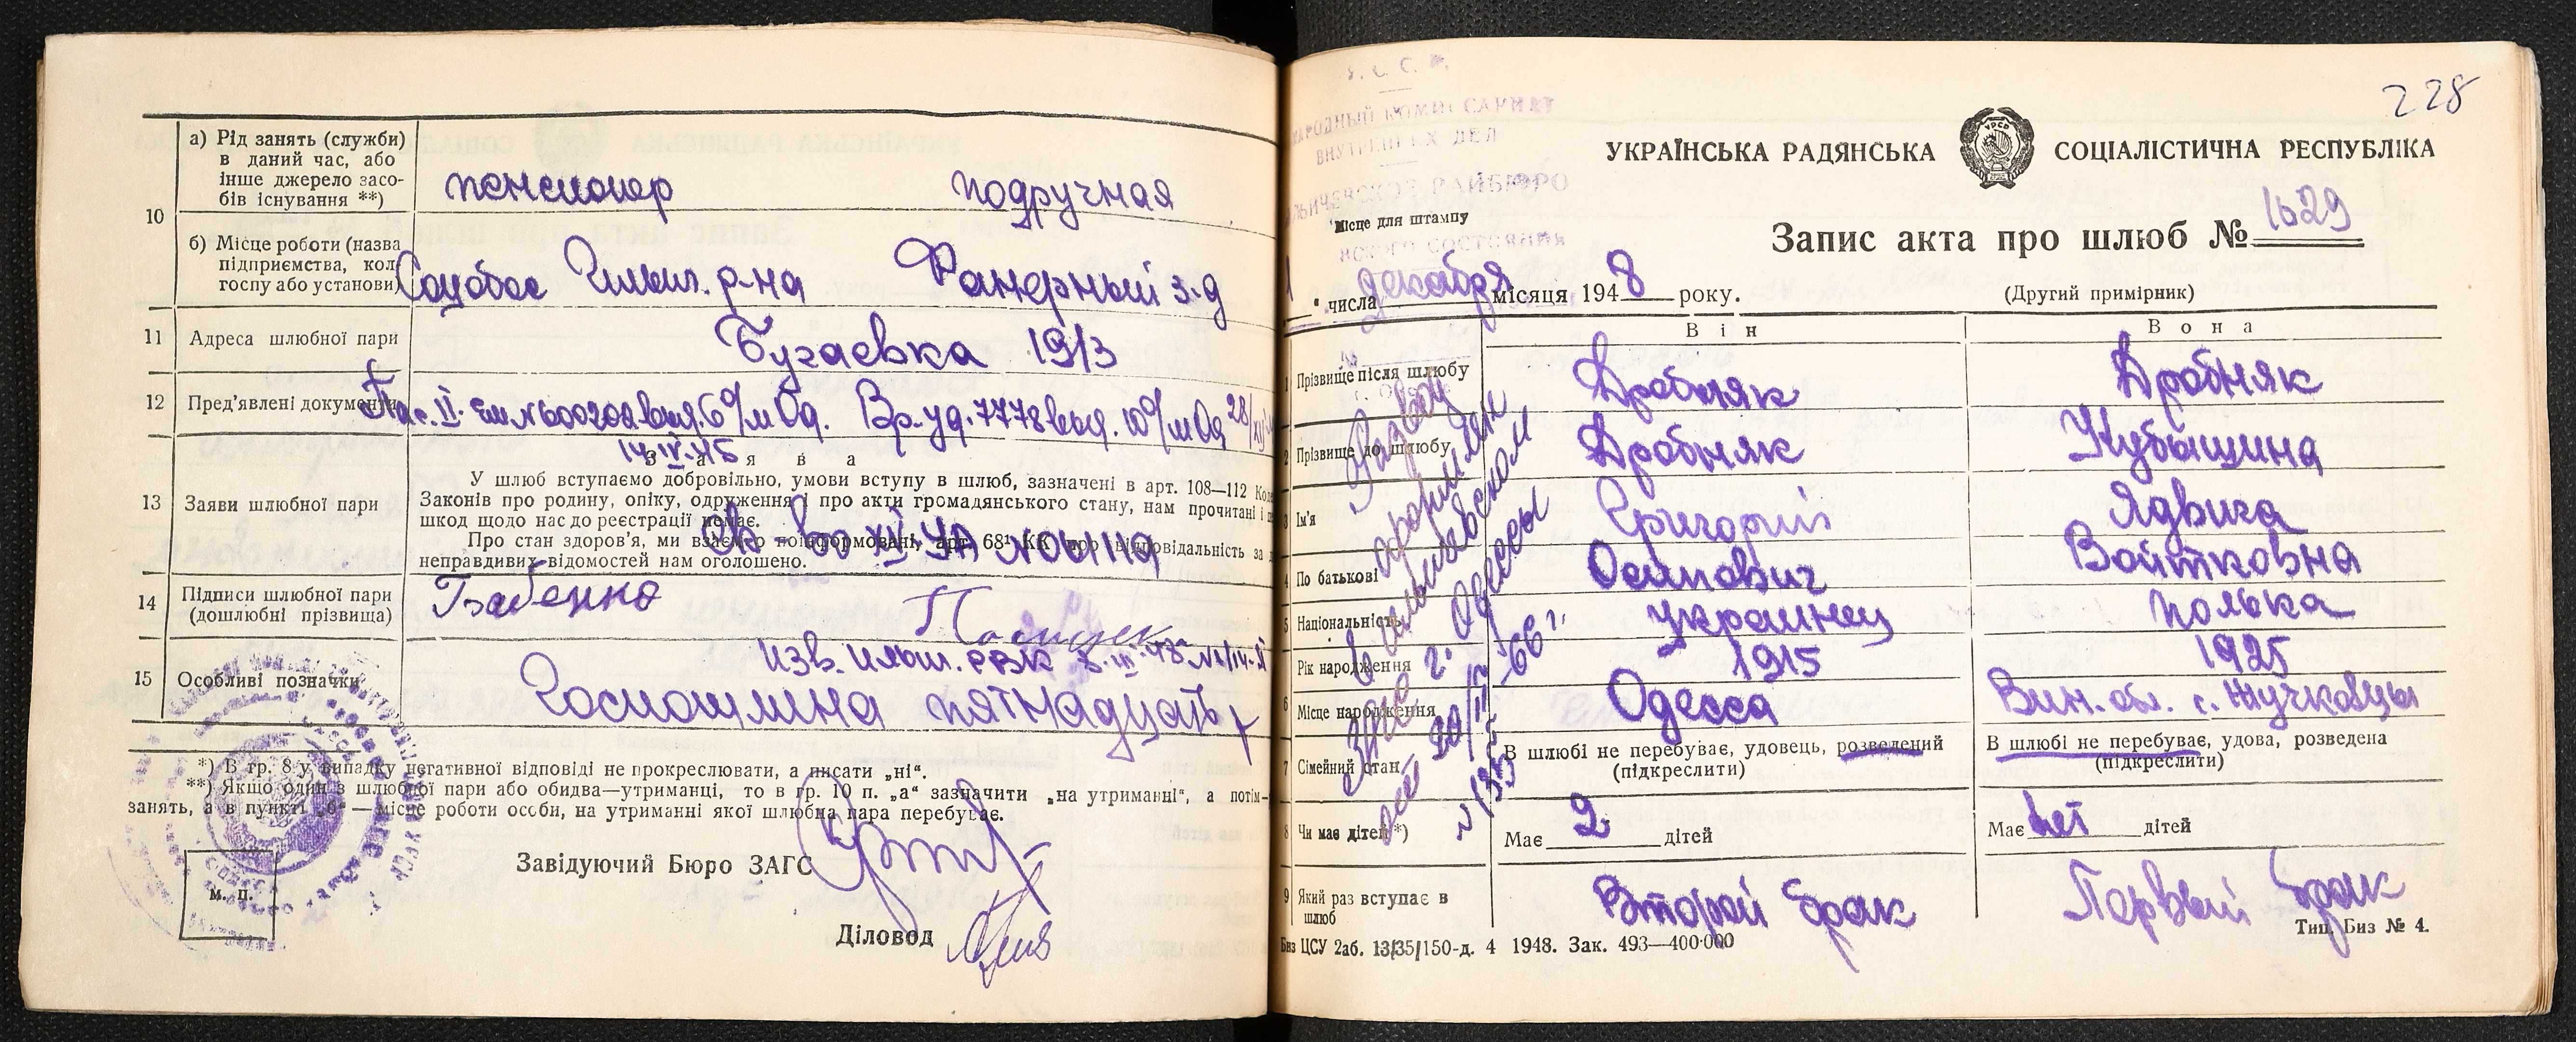 10
а) Рід занять (служби)
в даний час, або
інше джерело засо-
бів існування **)
пенсионер подручная
б) Місце роботи (назва
підприємства, кол-
госпу або установи)
Собес Ильич. р-на Фанерный з-д
11 Адреса шлюбної пари Бугаевка 19/3
12 Пред'явлені документи
13 Заяви шлюбної пари
З а я в а
У шлюб вступаємо добровільно, умови вступу в шлюб, зазначені в арт. 108—112
Законів про родину, опіку, одруження і про акти громадянського стану, нам прочитані і
шкод щодо нас до реєстрації немає.
Про стан здоров'я, ми взаємно поінформовані, арт. 68¹ КК про відповідальність за
неправдивих відомостей нам оголошено.
14 Підписи шлюбної пари
(дошлюбні прізвища)
15 Особливі позначки
Госпошлина пятнадцать р
*) В гр. 8 у випадку негативної відповіді не прокреслювати, а писати „ні“.
**) Якщо один з шлюбної пари або обидва—утриманці, то в гр. 10 п. „а“ зазначити „на утриманні“, а потім-
занять, а в пункті „б“ — місце роботи особи, на утриманні якої шлюбна пара перебуває.
Завідуючий Бюро ЗАГС
М. П.
Діловод
228
НАРОДНЫЙ КОМИССАРИАТ
ВНУТРЕННИХ ДЕЛ
РАЙБЮРО
Місце для штампу
УКРАЇНСЬКА РАДЯНСЬКА СОЦІАЛІСТИЧНА РЕСПУБЛІКА
УРСР
Запис акта про шлюб № 1629
1 " числа декабря місяця 1948 року.
(Другий примірник)
Він Вона
1 Прізвище після шлюбу Дробняк Дробняк
2 Прізвище до шлюбу Дробняк Кубышина
3 Ім'я Григорий Ядвига
4 По батькові Осипович Войтковна
5 Національність украинец полька
Рік народження 1915 1925
6 Місце народження Одесса Вин. обл. с. Жучковцы
7 Сімейний стан В шлюбі не перебуває, удовець, розведений В шлюбі не перебуває, удова, розведена
(підкреслити) (підкреслити)
8 Чи має дітей *) Має 2 дітей Має нет дітей
9 Який раз вступає в
шлюб
Второй брак Первый брак
Развод
оформлен
в Ильичевском
ЗАГСе г. Одессы
Биз ЦСУ 2аб. 13/35/150-д. 4 1948. Зак. 493—400·000
Тип. Биз № 4.